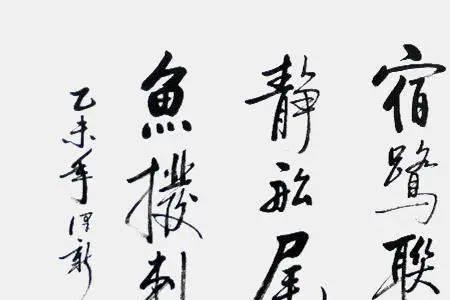 宿鷺聯
靜船尾
魚撥刺
乙未年新